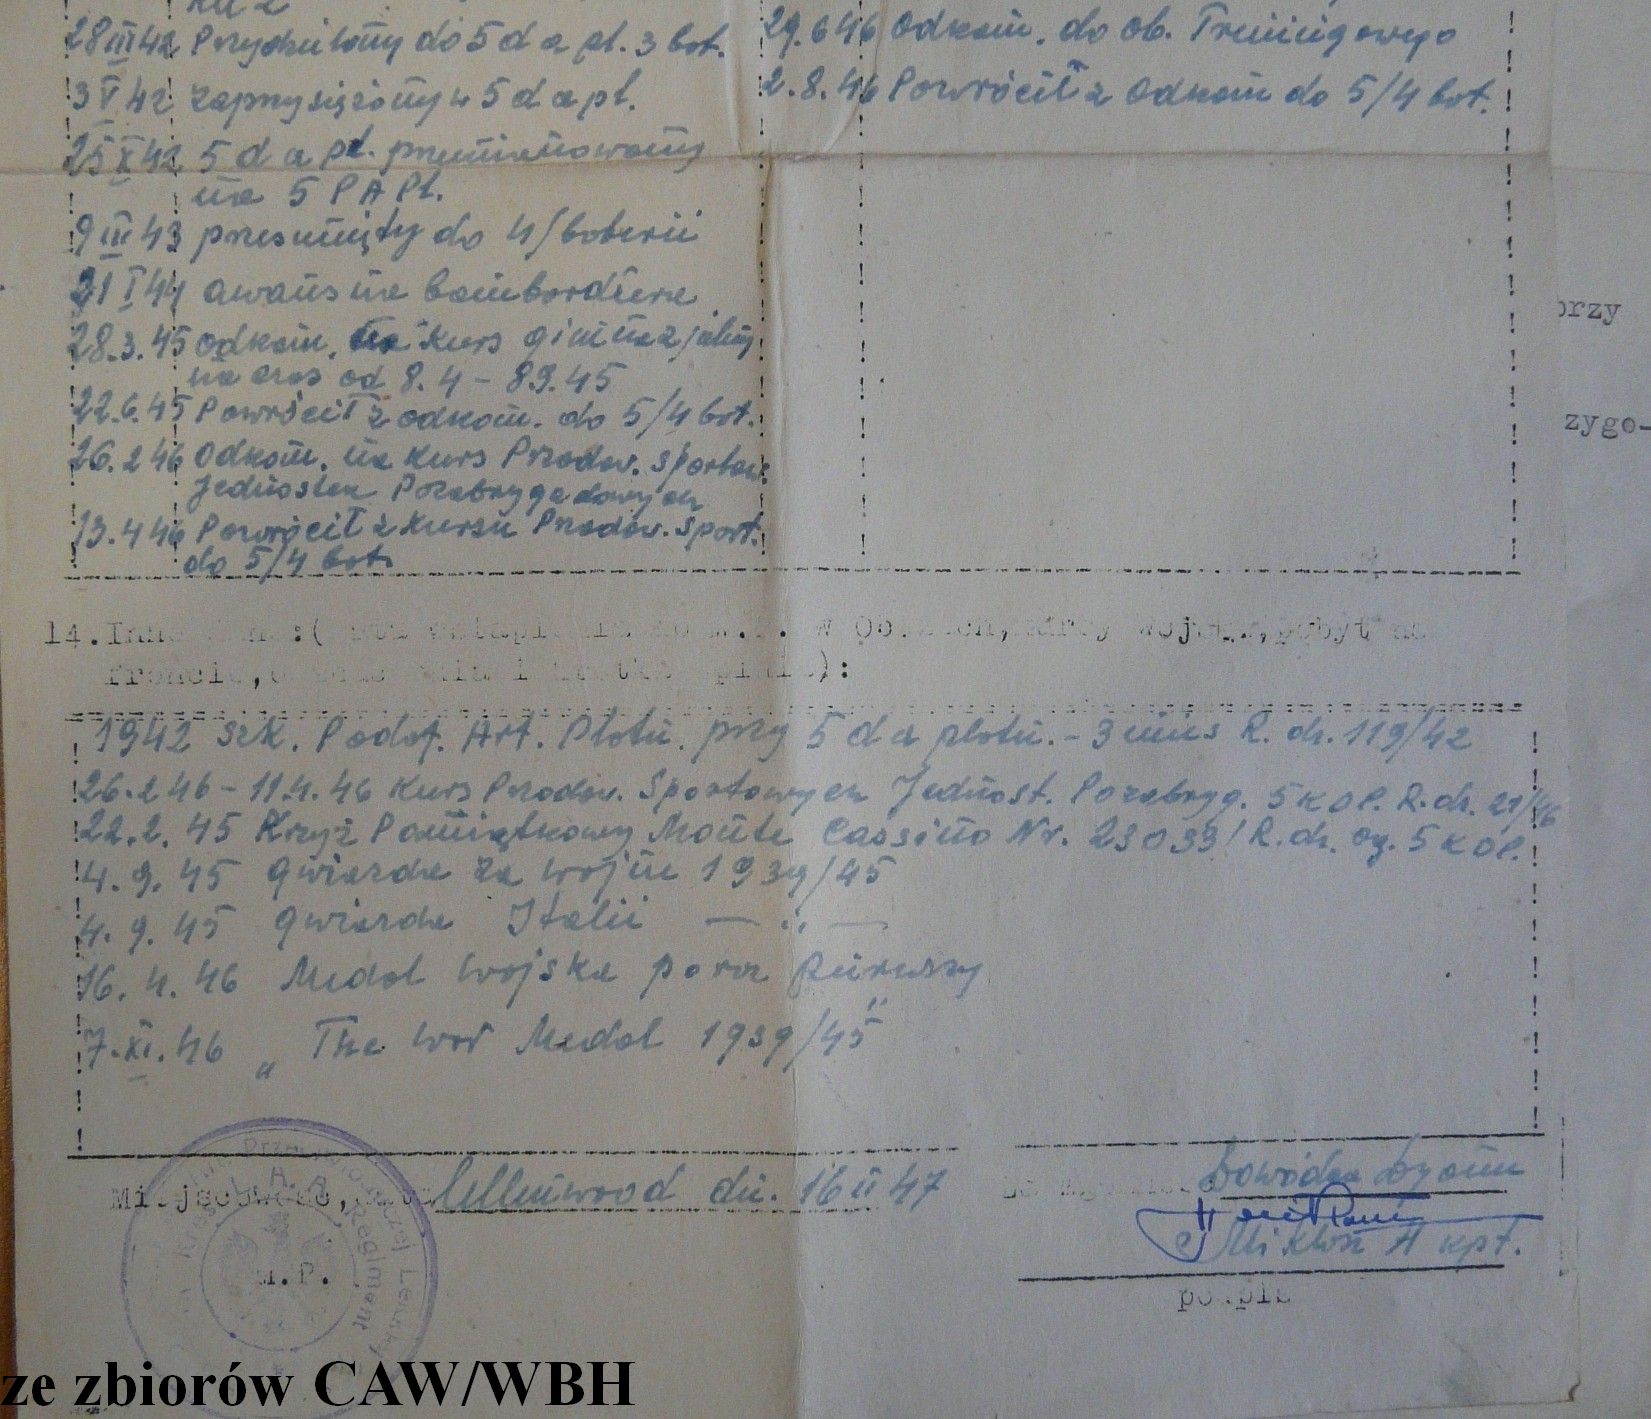 28 III 42 Przydzielony do 5 d a pl. 3 bat.
3 V 42 zaprzysiężony w 5 d a pl.
25 X 42 5 d a pl. przemianowany
na 5 P A Pl.
9 III 43 przesunięty do 4/baterii
21 I 44 awans na bombardiera
28.3.45 odkom. na kurs gimnazjalny
na czas od 8.4 - 8.9.45
22.6.45 Powrócił z odkom. do 5/4 bat.
26.2 46 Odkom. na kurs Przodow. Sportow.
Jednostek Pozabrygadowych
13.4 46 Powrócił z kursu Przodow. Sport.
do 5/4 bat.
29.6 46 Odkom. do Ob. Treningowego
2.8.46 Powrócił z Odkom do 5/4 bat.
14. Inne w wojska, pobyt na
froncie, i ):
1942 Szk. Podof. Art. Plotn. przy 5 d a plotn. - 3 mies R. dz. 119/42
26.2 46 - 11.4.46 Kurs Przodow. Sportowych Jednost. Pozabryg. 5 KDP. R. dz. 21/46
22.2.45 Krzyż Pamiątkowy Monte Cassino Nr. 23033/ R. dz. 5 KDP.
4.9.45 Gwiazda za wojnę 1939/45
4.9.45 Gwiazda Italii — „ —
16.4.46 Medal Wojska po raz pierwszy
7.XI.46 „ The War Medal 1939/45"
Miejscowość, dn. 16 II 47
Dowódca Dyonu
A kpt.
podpis
M.P.
Regiment
ze zbiorów CAW/WBH
orzy
zygo-